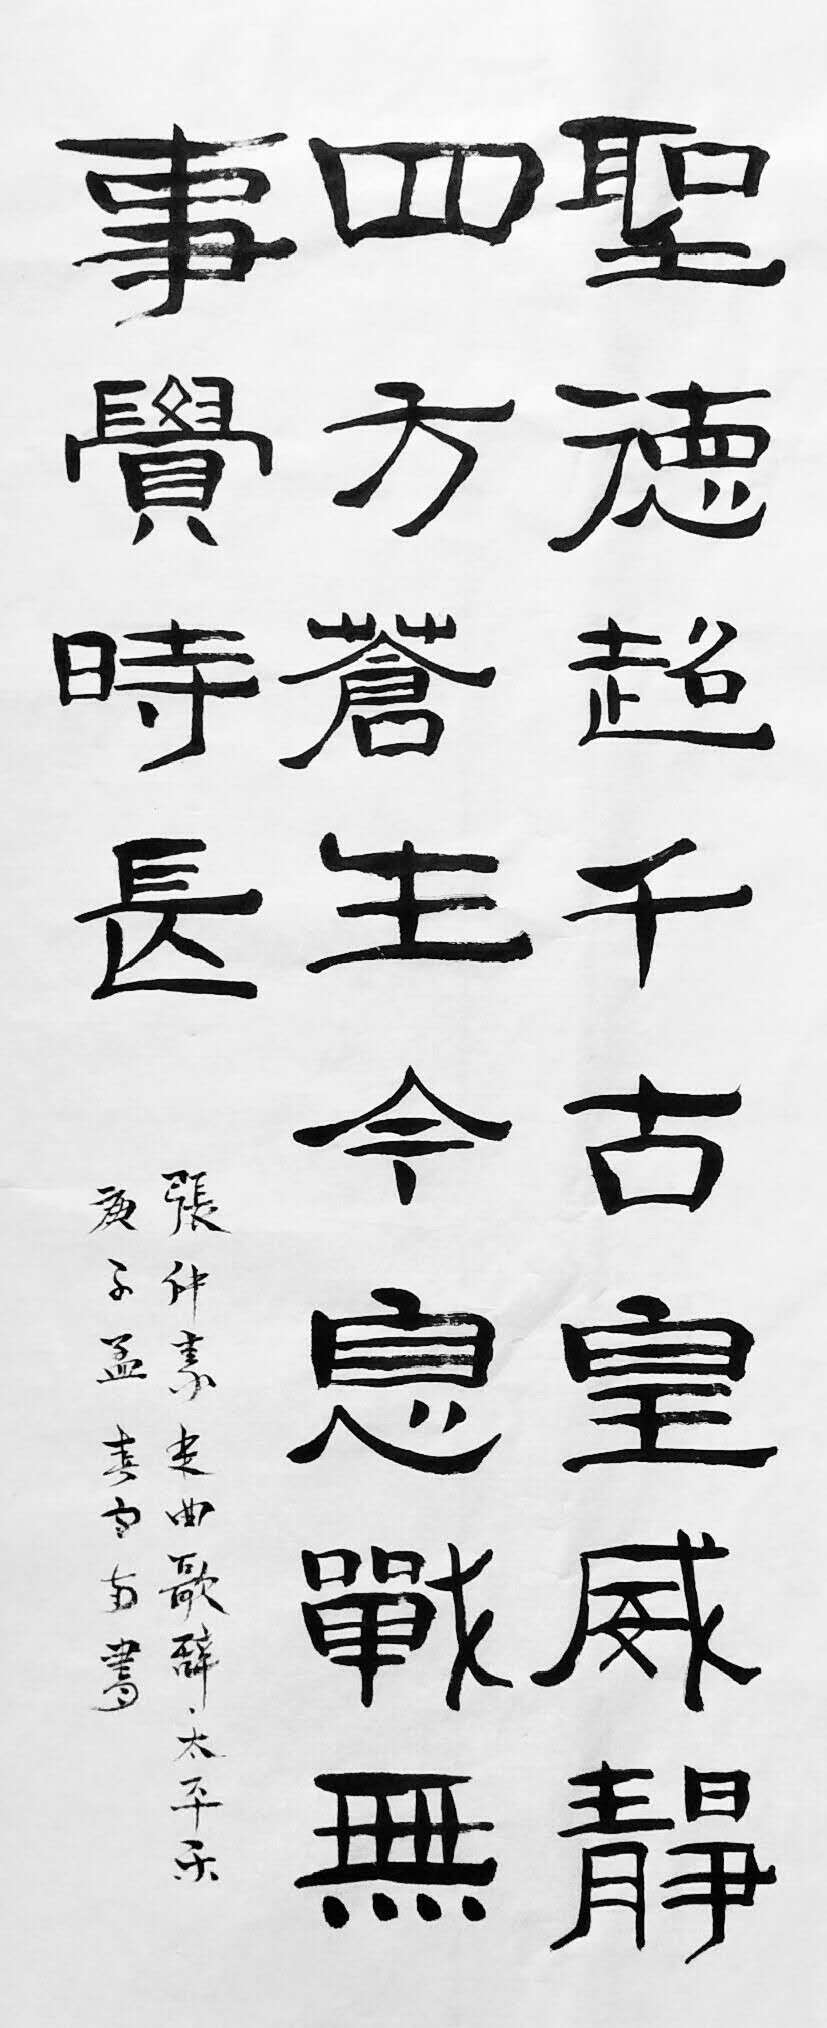 聖德超千古皇威靜
四方蒼生今息戰無
事覺時長
張仲素走曲歌辭太平樂
庚子孟春雪舟書